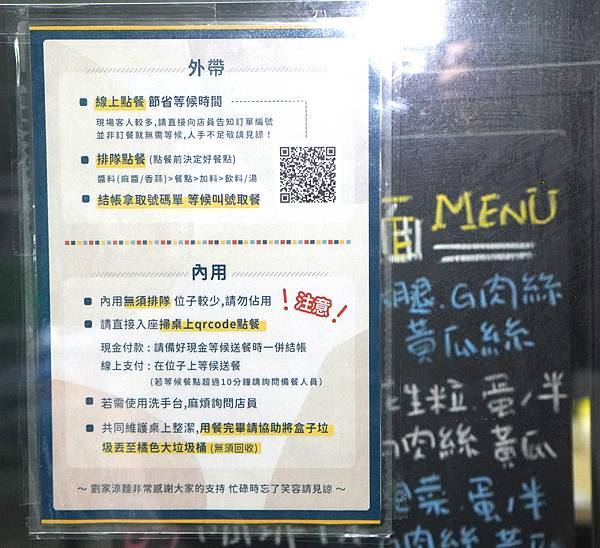 外帶
線上點餐 節省等候時間
現場客人較多,請直接向店員告知訂單編號
並非訂餐就無需等候,人手不足敬請見諒！
排隊點餐 (點餐前決定好餐點)
醬料(麻醬/香蒜)>餐點>加料>飲料/湯
結帳拿取號碼單 等候叫號取餐
內用
內用無須排隊 位子較少,請勿佔用
！注意！
請直接入座掃桌上qrcode點餐
現金付款：請備好現金等候送餐時一併結帳
線上支付：在位子上等候送餐
(若等候餐點超過10分鐘請詢問備餐人員)
若需使用洗手台,麻煩詢問店員
共同維護桌上整潔,用餐完畢請協助將盒子垃
圾丟至橘色大垃圾桶 (無須回收)
～ 劉家涼麵非常感謝大家的支持 忙碌時忘了笑容請見諒 ～
MENU
腿.G肉絲
黃瓜絲
生粒.蛋/半
肉絲黃瓜
菜.蛋/半